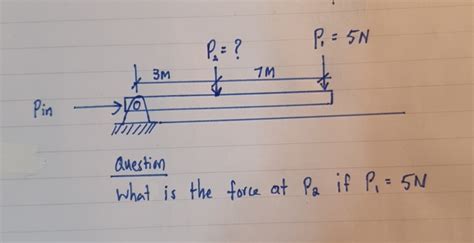 P₂ = ?
P₁ = 5N
3M
7M
Pin
Question
What is the force at P₂ if P₁ = 5N